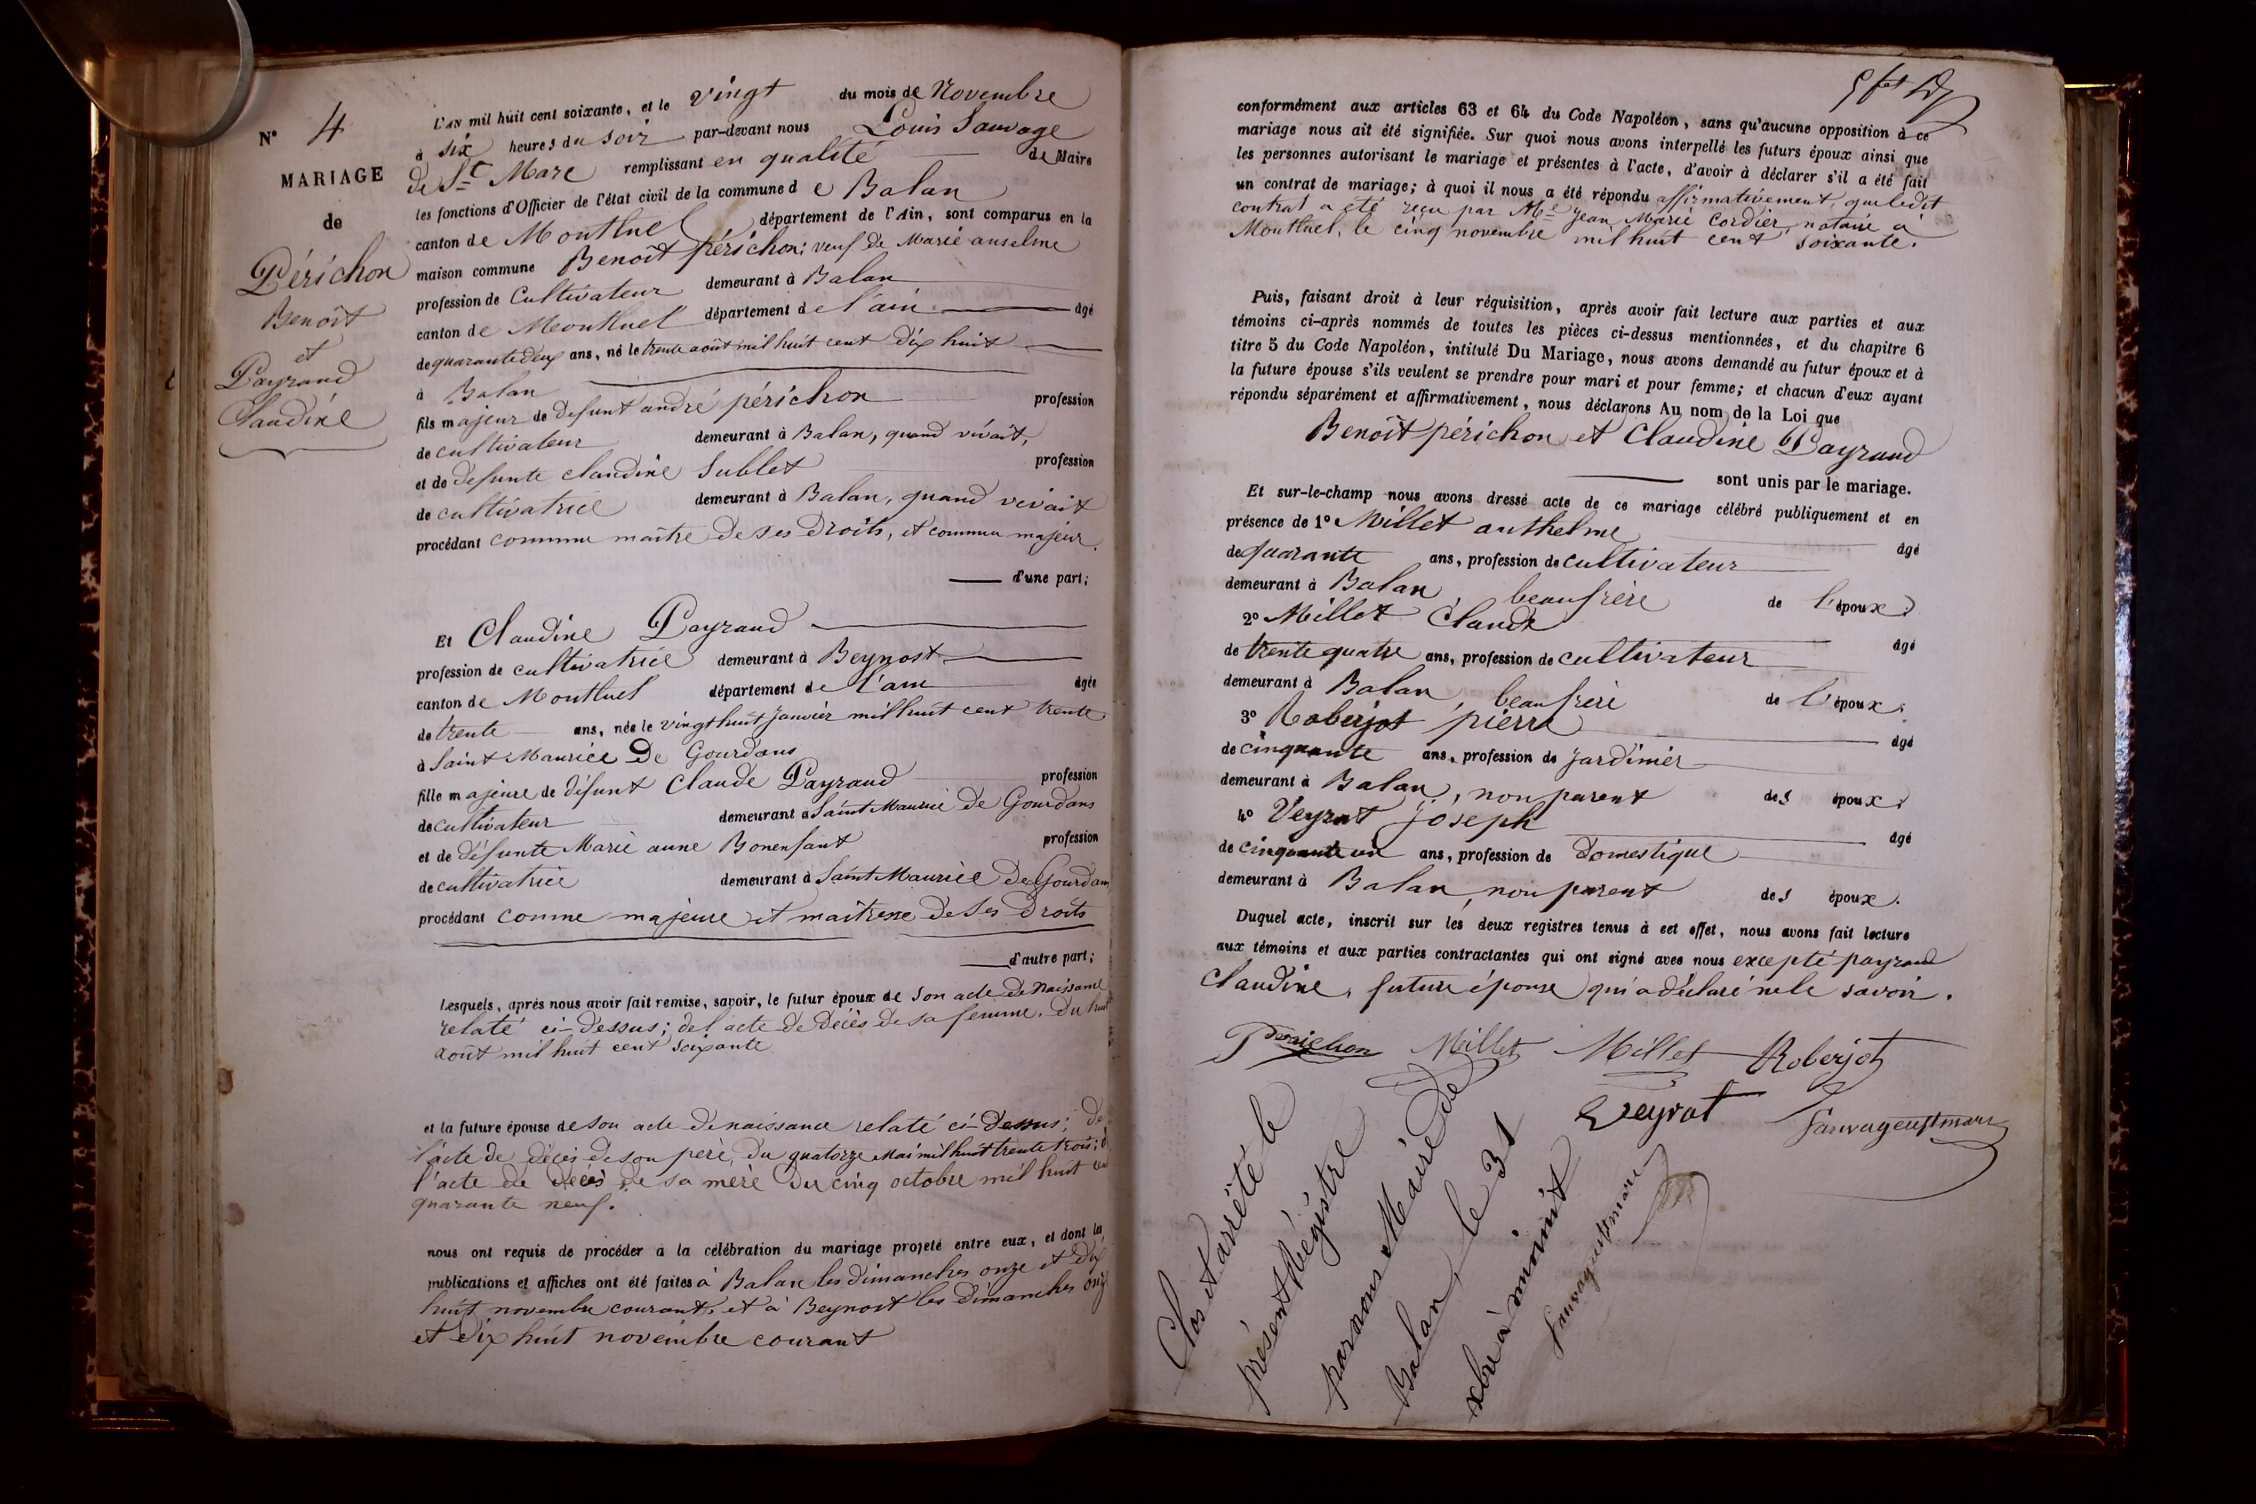 N° 4
MARIAGE
de
Périchon
Benoît
et
Payraud
Claudine
L'AN mil huit cent soixante, et le vingt du mois de Novembre
à six heures du soir par-devant nous Louis Sauvage
de St Marc remplissant en qualité de Maire
les fonctions d'Officier de l'état civil de la commune de Balan
canton de Montluel département de l'Ain, sont comparus en la
maison commune Benoît périchon; veuf de Marie anselme
profession de Cultivateur demeurant à Balan
canton de Montluel département de l'ain agé
de quarante deux ans, né le trente août mil huit cent dix huit
à Balan
fils majeur de defunt andré périchon profession
de cultivateur demeurant à Balan, quand vivait,
et de defunte claudine Sublet profession
de cultivatrice demeurant à Balan, quand vivait
procédant comme maître de ses droits, et comme majeur.
d'une part;
Et Claudine Payraud
profession de cultivatrice demeurant à Beynost
canton de Montluel département de l'ain agée
de trente ans, née le vingt huit janvier mil huit cent trente
à Saint Maurice De Gourdans
fille majeure de défunt Claude Payraud profession
de cultivateur demeurant à Saint Maurice de Gourdans
et de défunte Marie anne Bonenfant profession
de cultivatrice demeurant à Saint Maurice de Gourdans
procédant comme majeure et maitresse de ses droits
d'autre part;
Lesquels, après nous avoir fait remise, savoir, le futur époux de son acte de naissance
relaté ci-dessus; de l'acte de décès de sa femme. Du huit
août mil huit cent soixante
et la future épouse de son acte de naissance relaté ci-dessus; de
l'acte de décès de son père, du quatorze Mai mil huit trente trois; de
l'acte de décès de sa mère du cinq octobre mil huit cent
quarante neuf.
nous ont requis de procéder à la célébration du mariage projeté entre eux, et dont les
publications et affiches ont été faites à Balan les dimanches onze et dix
huit novembre courant, et à Beynost les dimanches onze
et dix huit novembre courant
conformément aux articles 63 et 64 du Code Napoléon, sans qu'aucune opposition à ce
mariage nous ait été signifiée. Sur quoi nous avons interpellé les futurs époux ainsi que
les personnes autorisant le mariage et présentes à l'acte, d'avoir à déclarer s'il a été fait
un contrat de mariage; à quoi il nous a été répondu affirmativement, que ledit
contrat a été reçu par Me Jean Marie Cordier, notaire à
Montluel, le cinq novembre mil huit cent soixante.
Puis, faisant droit à leur réquisition, après avoir fait lecture aux parties et aux
témoins ci-après nommés de toutes les pièces ci-dessus mentionnées, et du chapitre 6
titre 5 du Code Napoléon, intitulé Du Mariage, nous avons demandé au futur époux et à
la future épouse s'ils veulent se prendre pour mari et pour femme; et chacun d'eux ayant
répondu séparément et affirmativement, nous déclarons Au nom de la Loi que
Benoît périchon et Claudine Payraud
sont unis par le mariage.
Et sur-le-champ nous avons dressé acte de ce mariage célébré publiquement et en
présence de 1° Millet anthelme agé
de quarante ans, profession de cultivateur
demeurant à Balan, beaufrère de l'époux;
2° Millet Claude agé
de trente quatre ans, profession de cultivateur
demeurant à Balan, beaufrère de l'époux;
3° Roberjot pierre agé
de cinquante ans, profession de jardinier
demeurant à Balan, non parent des époux;
4° Veyrat joseph agé
de cinquante un ans, profession de domestique
demeurant à Balan, non parent des époux.
Duquel acte, inscrit sur les deux registres tenus à cet effet, nous avons fait lecture
aux témoins et aux parties contractantes qui ont signé avec nous excepté payraud
Claudine, future épouse qui a déclaré ne le savoir.
Millet Millet Roberjot
Veyrat Sauvage St marc
Clos et arrêté le
présent Régistre
par nous Maire de
Balan, le 31
xbre à minuit
Sauvage St marc